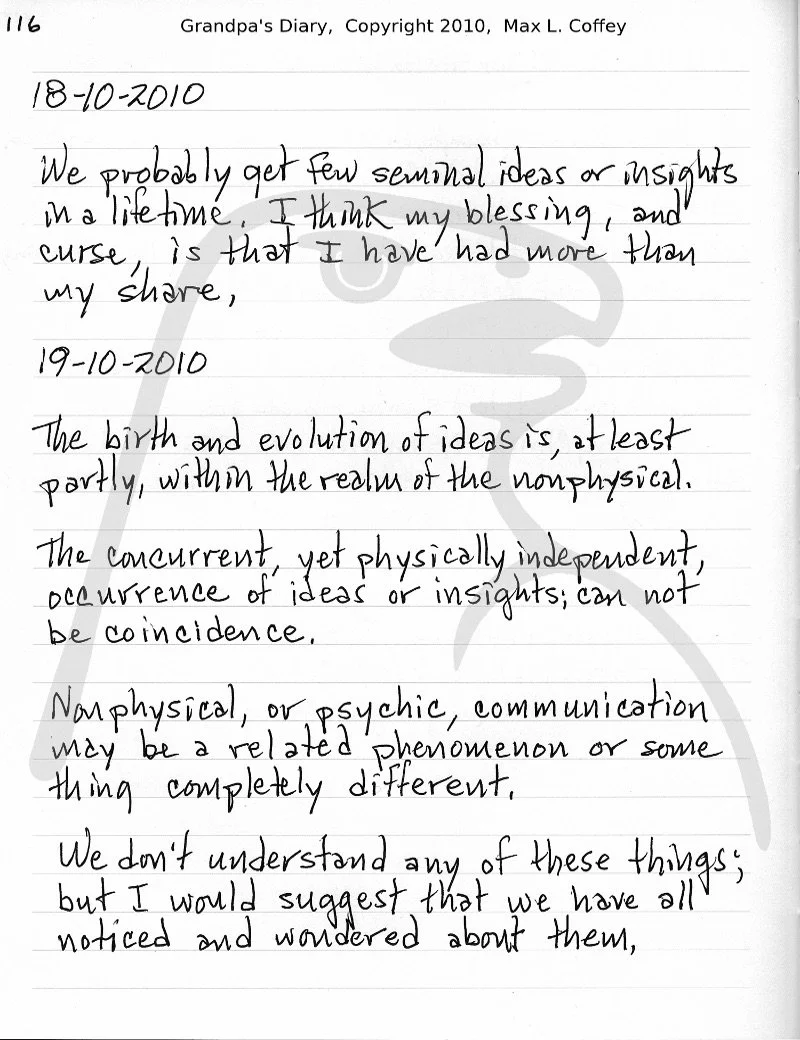 116
Grandpa's Diary, Copyright 2010, Max L. Coffey
18-10-2010
We probably get few seminal ideas or insights
in a lifetime. I think my blessing, and
curse, is that I have had more than
my share,
19-10-2010
The birth and evolution of ideas is, at least
partly, within the realm of the nonphysical.
The concurrent, yet physically independent,
occurrence of ideas or insights; can not
be coincidence.
Nonphysical, or psychic, communication
may be a related phenomenon or some
thing completely different.
We don't understand any of these things;
but I would suggest that we have all
noticed and wondered about them,